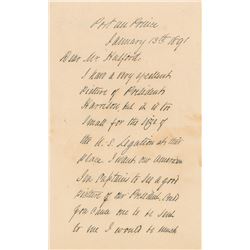 Port au Prince
January 13th 1891
Dear Mr Halford:
I have a very excellent
picture of President
Harrison but it is too
small for the size of
the U.S. Legation at this
place I want our American
Sea Captains to see a good
picture of our President. Could
you cause one to be sent
to me I would be much